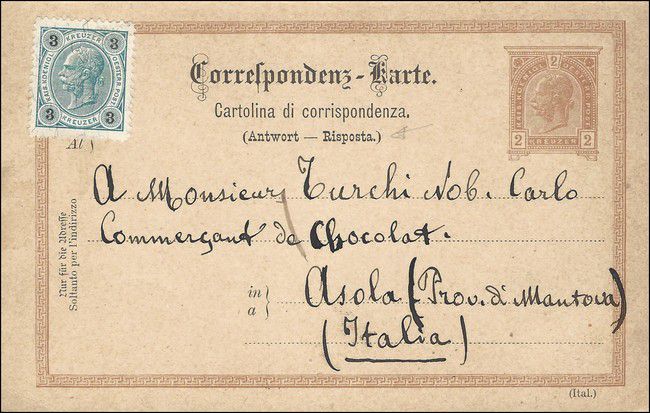 3 KREUZER 3
KAIS. KOENIGL. OESTERR. POST
3 KREUZER 3
Correspondenz-Karte.
Cartolina di corrispondenza.
(Antwort — Risposta.)
2
KAIS. KOENIGL. OESTERR. POST
2 KREUZER 2
Al
A Monsieur Turchi Nob. Carlo
Commerçant de Chocolat.
in
a
Asola (Prov. di Mantova)
(Italia)
Nur für die Adresse
Soltanto per l'indirizzo
(Ital.)